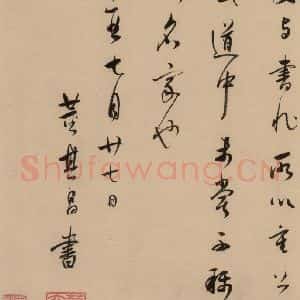 与書非所以重公
道中未嘗不稱
名家也
七月廿七日
董其昌書
Shufawang.CN